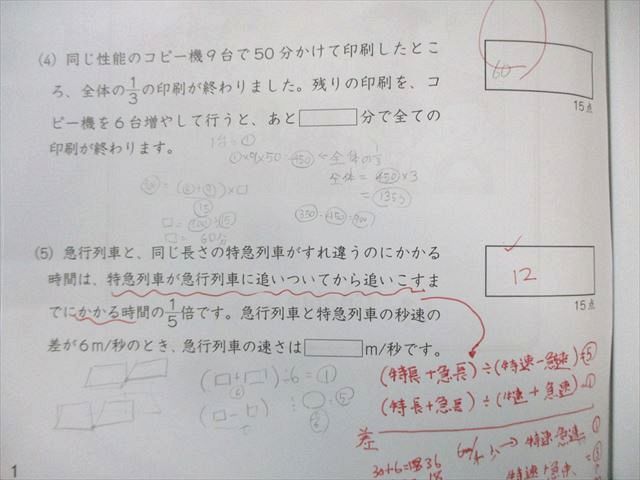 (4) 同じ性能のコピー機9台で50分かけて印刷したとこ
ろ、全体の1/3の印刷が終わりました。残りの印刷を、コ
ピー機を6台増やして行うと、あと　　分で全ての
印刷が終わります。
60
15点
1台=①
①×9×50=450 ← 全体の1/3
全体 = 450×3
= 1350
1350-450=900
□=60分
(5) 急行列車と、同じ長さの特急列車がすれ違うのにかかる
時間は、特急列車が急行列車に追いついてから追いこすま
でにかかる時間の1/5倍です。急行列車と特急列車の秒速の
差が6m/秒のとき、急行列車の速さは　　m/秒です。
12
15点
(特長+急長)÷(特速-急速)=⑤
(特長+急長)÷(特速+急速)=①
差
(□+□)÷6=①
特速-急速
特速+急速
1